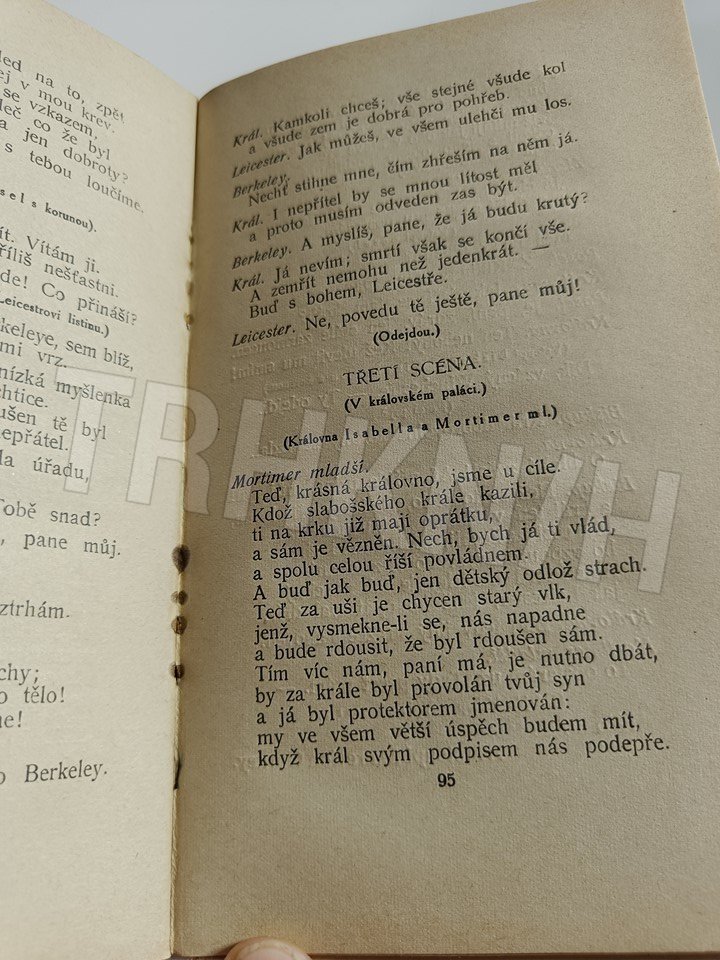 led na to, zpět
ej v mou krev.
se vzkazem,
leč co že byl
a jen dobroty?
s tebou loučíme.
s e l s korunou).
ít. Vítám ji.
říliš nešťastni.
de! Co přináší?
Leicestrovi listinu.)
rkeleye, sem blíž,
mi vrz.
nízká myšlenka
chtice.
oušen tě byl
nepřátel.
la úřadu,
Tobě snad?
, pane můj.
ztrhám.
chy;
o tělo!
ne!
o Berkeley.
Král. Kamkoli chceš; vše stejné všude kol
a všude zem je dobrá pro pohřeb.
Leicester. Jak můžeš, ve všem ulehči mu los.
Berkeley.
Nechť stihne mne, čím zhřeším na něm já.
Král. I nepřítel by se mnou lítost měl
a proto musím odveden zas být.
Berkeley. A myslíš, pane, že já budu krutý?
Král. Já nevím; smrtí však se končí vše.
A zemřít nemohu než jedenkrát. —
Buď s bohem, Leicestře.
Leicester. Ne, povedu tě ještě, pane můj!
(Odejdou.)
TŘETÍ SCÉNA.
(V královském paláci.)
(Královna Isabella a Mortimer ml.)
Mortimer mladší.
Teď, krásná královno, jsme u cíle.
Kdož slabošského krále kazili,
ti na krku již mají oprátku,
a sám je vězněn. Nech, bych já ti vlád,
a spolu celou říší povládnem.
A buď jak buď, jen dětský odlož strach.
Teď za uši je chycen starý vlk,
jenž, vysmekne-li se, nás napadne
a bude rdousit, že byl rdoušen sám.
Tím víc nám, paní má, je nutno dbát,
by za krále byl provolán tvůj syn
a já byl protektorem jmenován:
my ve všem větší úspěch budem mít,
když král svým podpisem nás podepře.
95
TRHKNIH